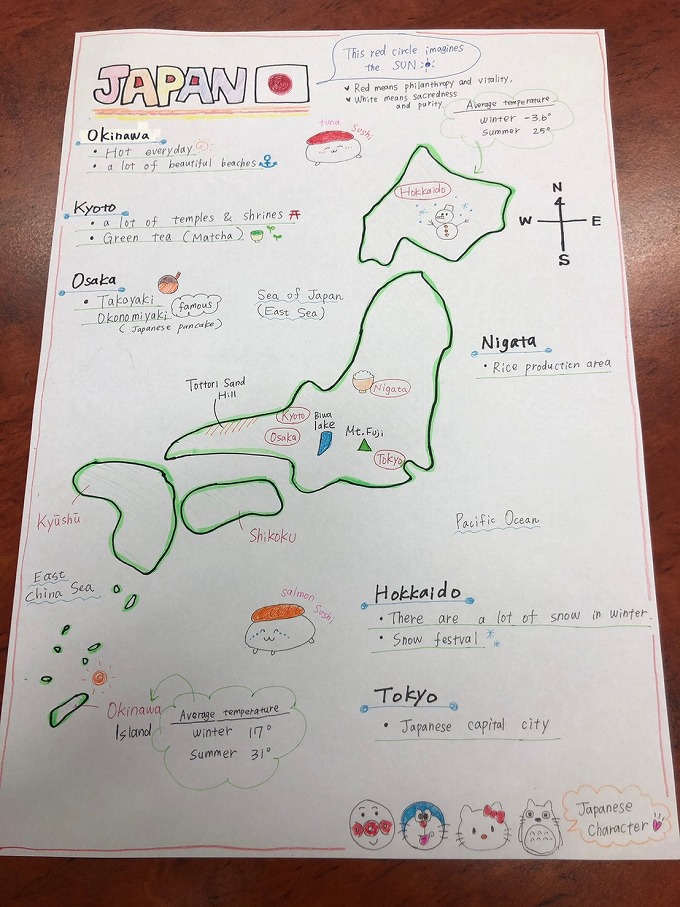 JAPAN
This red circle imagines
the SUN
✓ Red means philanthropy and vitality.
✓ White means sacredness
and purity
Average temperature
winter -3.6°
summer 25°
Okinawa
• Hot everyday
• a lot of beautiful beaches
tuna
Sushi
Hokkaido
N
W E
S
Kyoto
• a lot of temples & shrines
• Green tea (Matcha)
Osaka
• Takoyaki
Okonomiyaki
(Japanese pancake)
famous
Sea of Japan
(East Sea)
Nigata
• Rice production area
Tottori Sand
Hill
Nigata
Kyoto
Osaka
Biwa
lake
Mt. Fuji
Tokyo
Kyūshū
Shikoku
Pacific Ocean
East
China Sea
salmon
Sushi
Hokkaido
• There are a lot of snow in winter.
• Snow festval
Okinawa
Island
Average temperature
winter 17°
summer 31°
Tokyo
• Japanese capital city
Japanese
Character